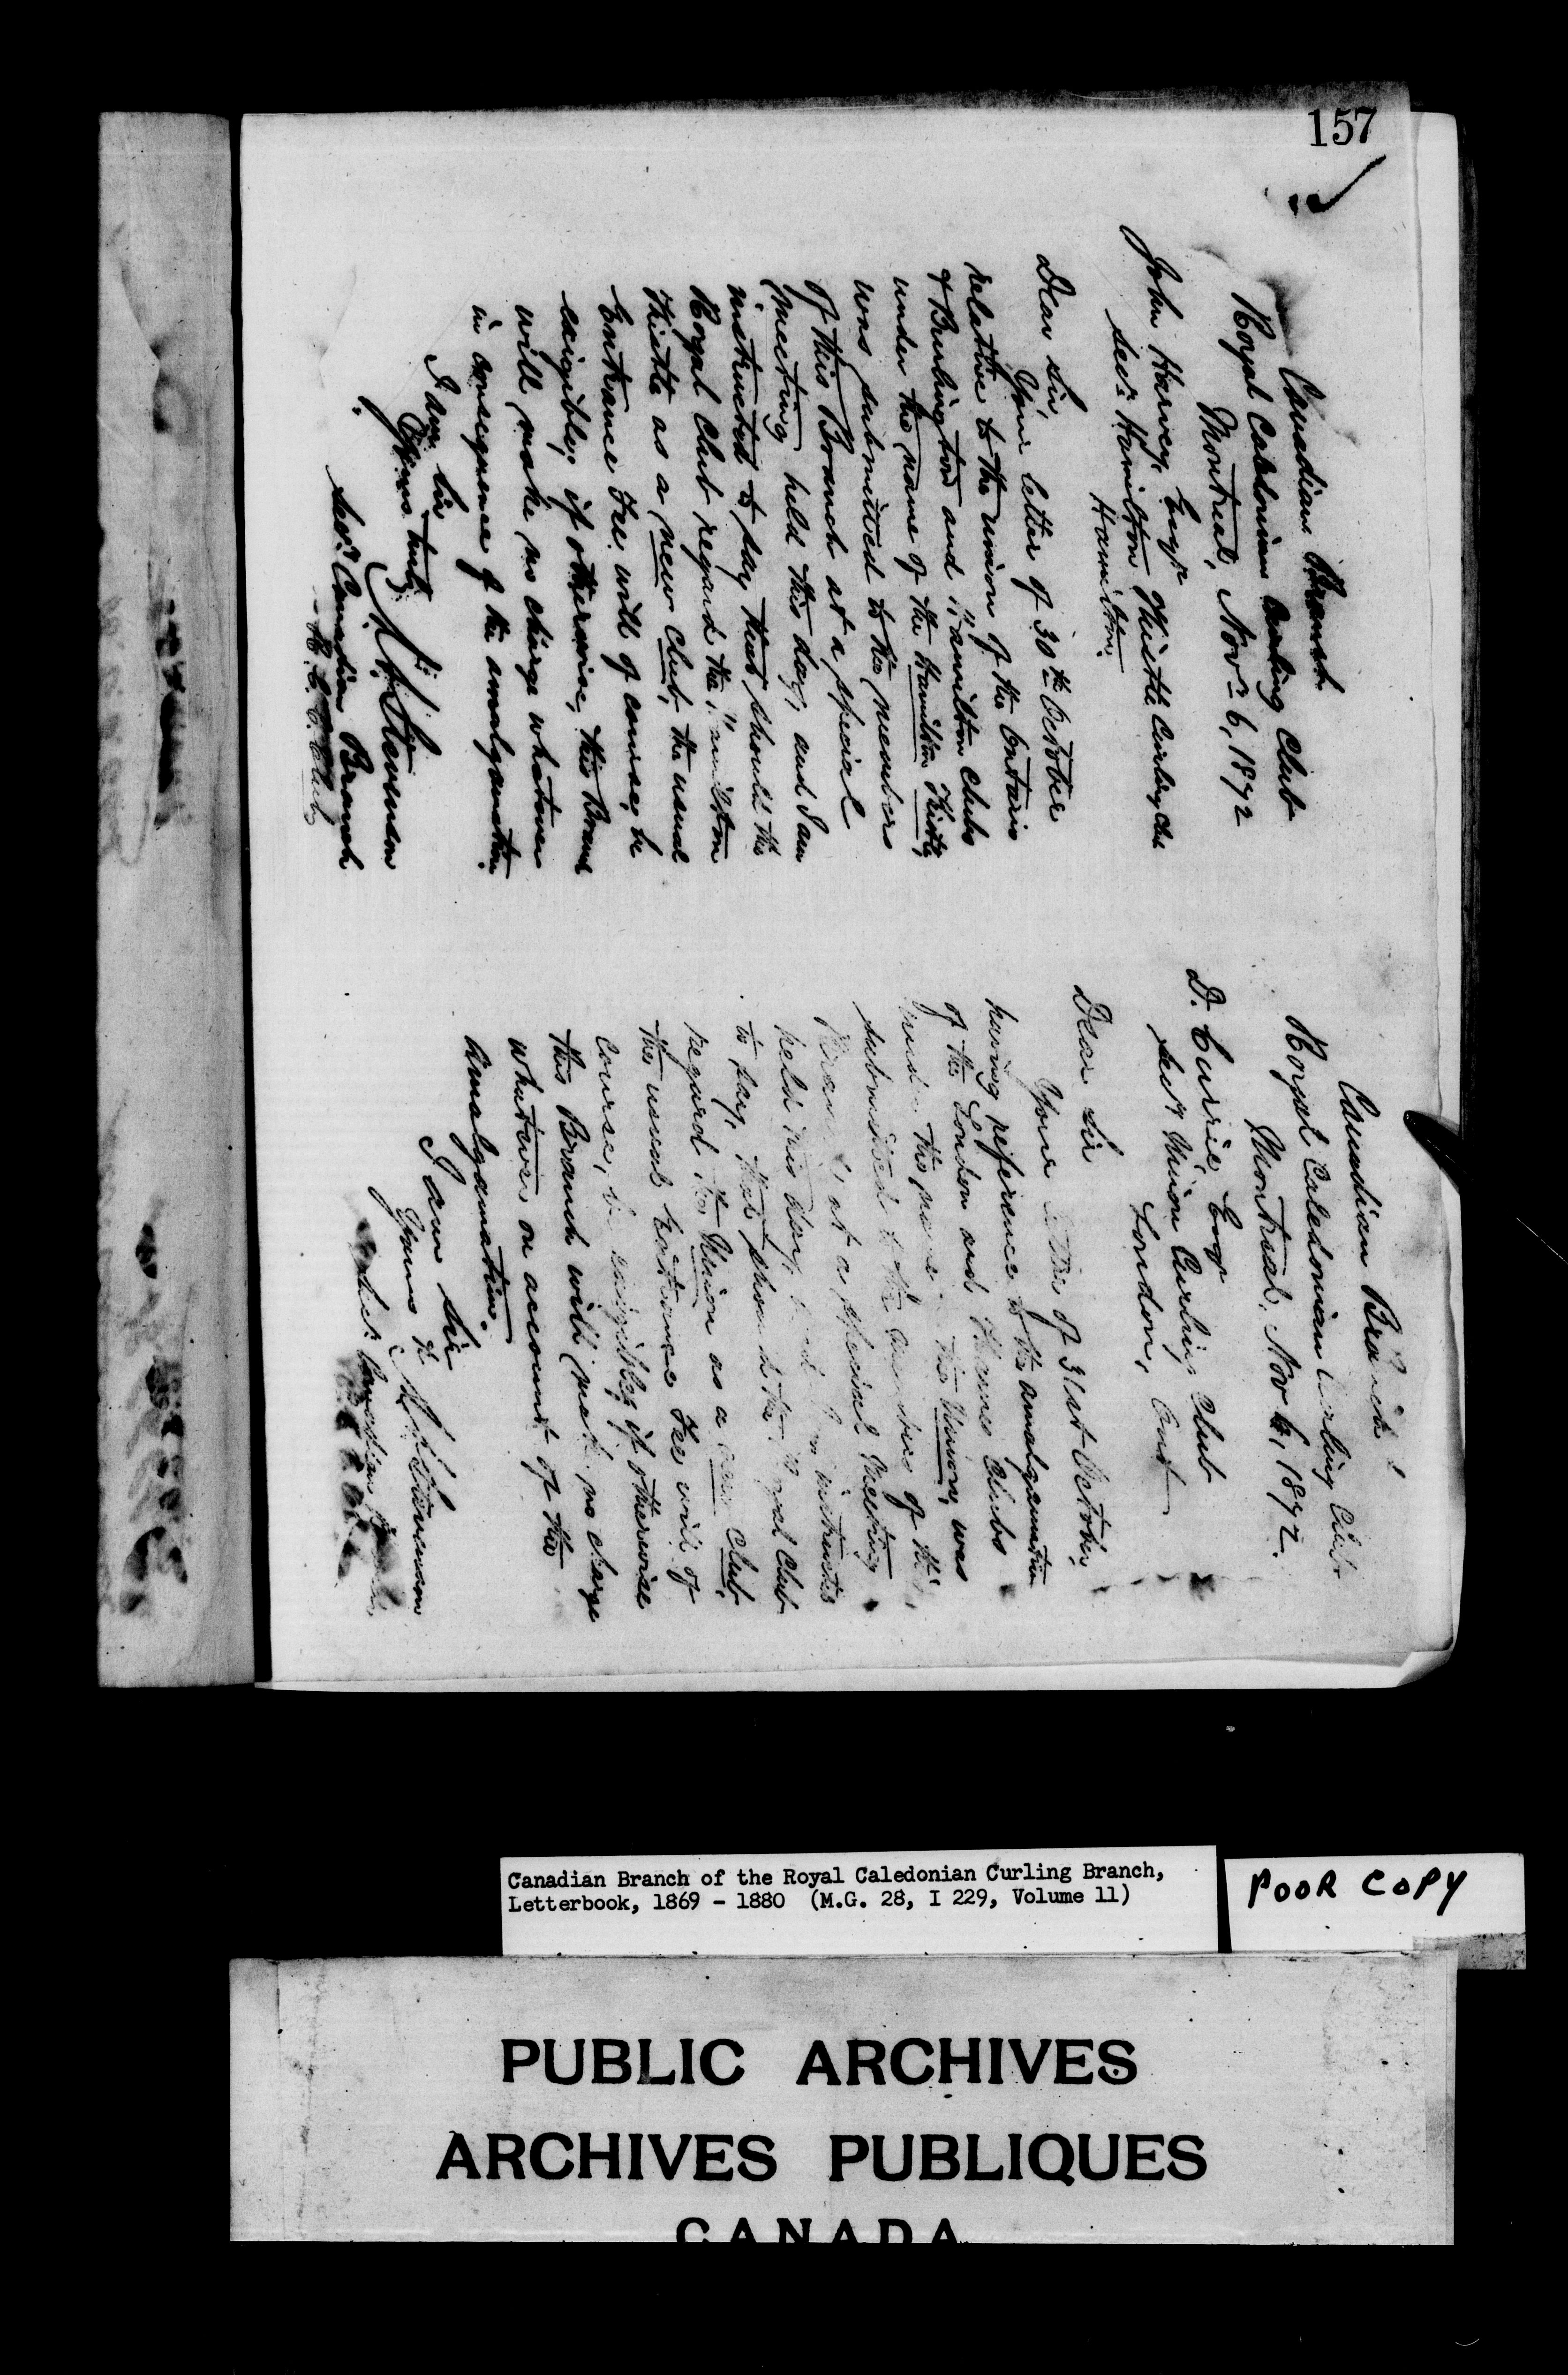 157
Canadian Branch
Royal Caledonian Curling Club
Montreal, Novr. 6, 1872
John Harvey, Esqr
Secy. Hamilton Thistle Curling Club
Hamilton.
Dear Sir
Your letter of 30th October
relative to the union of the Ontario
of Burlington and Hamilton Clubs
under the name of the Hamilton Thistle,
was submitted to the members
of this Branch at a special
meeting held this day, and I am
instructed to say that should the
Royal Club regard the Hamilton
Thistle as a new Club, the usual
Entrance Fee will of course, be
exigible; if otherwise, this Branch
will make no charge whatever
in consequence of the amalgamation.
I am Sir
Yours truly
A. H. Stevenson
Secy. Canadian Branch
R. C. C. Club
Canadian Branch
Royal Caledonian Curling Club
Montreal, Nov 6, 1872.
D. Currie, Esqr
Secy Union Curling Club
London, Ont
Dear Sir
Your letter of 31st October,
having reference to the amalgamation
of the London and Thames Clubs
under the name the Union, was
submitted to the members of this
Branch at a special Meeting
held this day, and I am instructed
to say, that should the Royal Club
regard the Union as a new Club,
the usual Entrance Fee will of
course, be exigible; if otherwise
this Branch will make no charge
whatever on account of the
Amalgamation.
I am Sir
Yours &c
A. H. Stevenson
Secy. Canadian Branch
Canadian Branch of the Royal Caledonian Curling Branch,
Letterbook, 1869 - 1880 (M.G. 28, I 229, Volume 11)
POOR COPY
PUBLIC ARCHIVES
ARCHIVES PUBLIQUES
CANADA